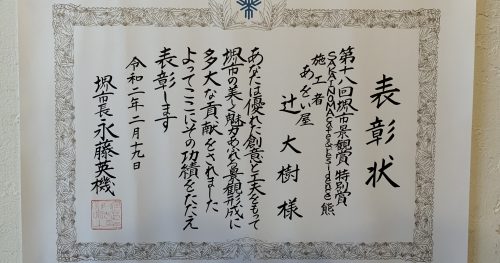 表彰状
第十八回堺市景観賞 特別賞
SAKAINOMA cafe & residence 熊
施工者
あをい屋
辻大樹様
あなたは優れた創意と工夫をもって
堺市の美と魅力あふれる景観形成に
多大な貢献をされました
よってここにその功績をたたえ
表彰します
令和二年二月十九日
堺市長 永藤英機